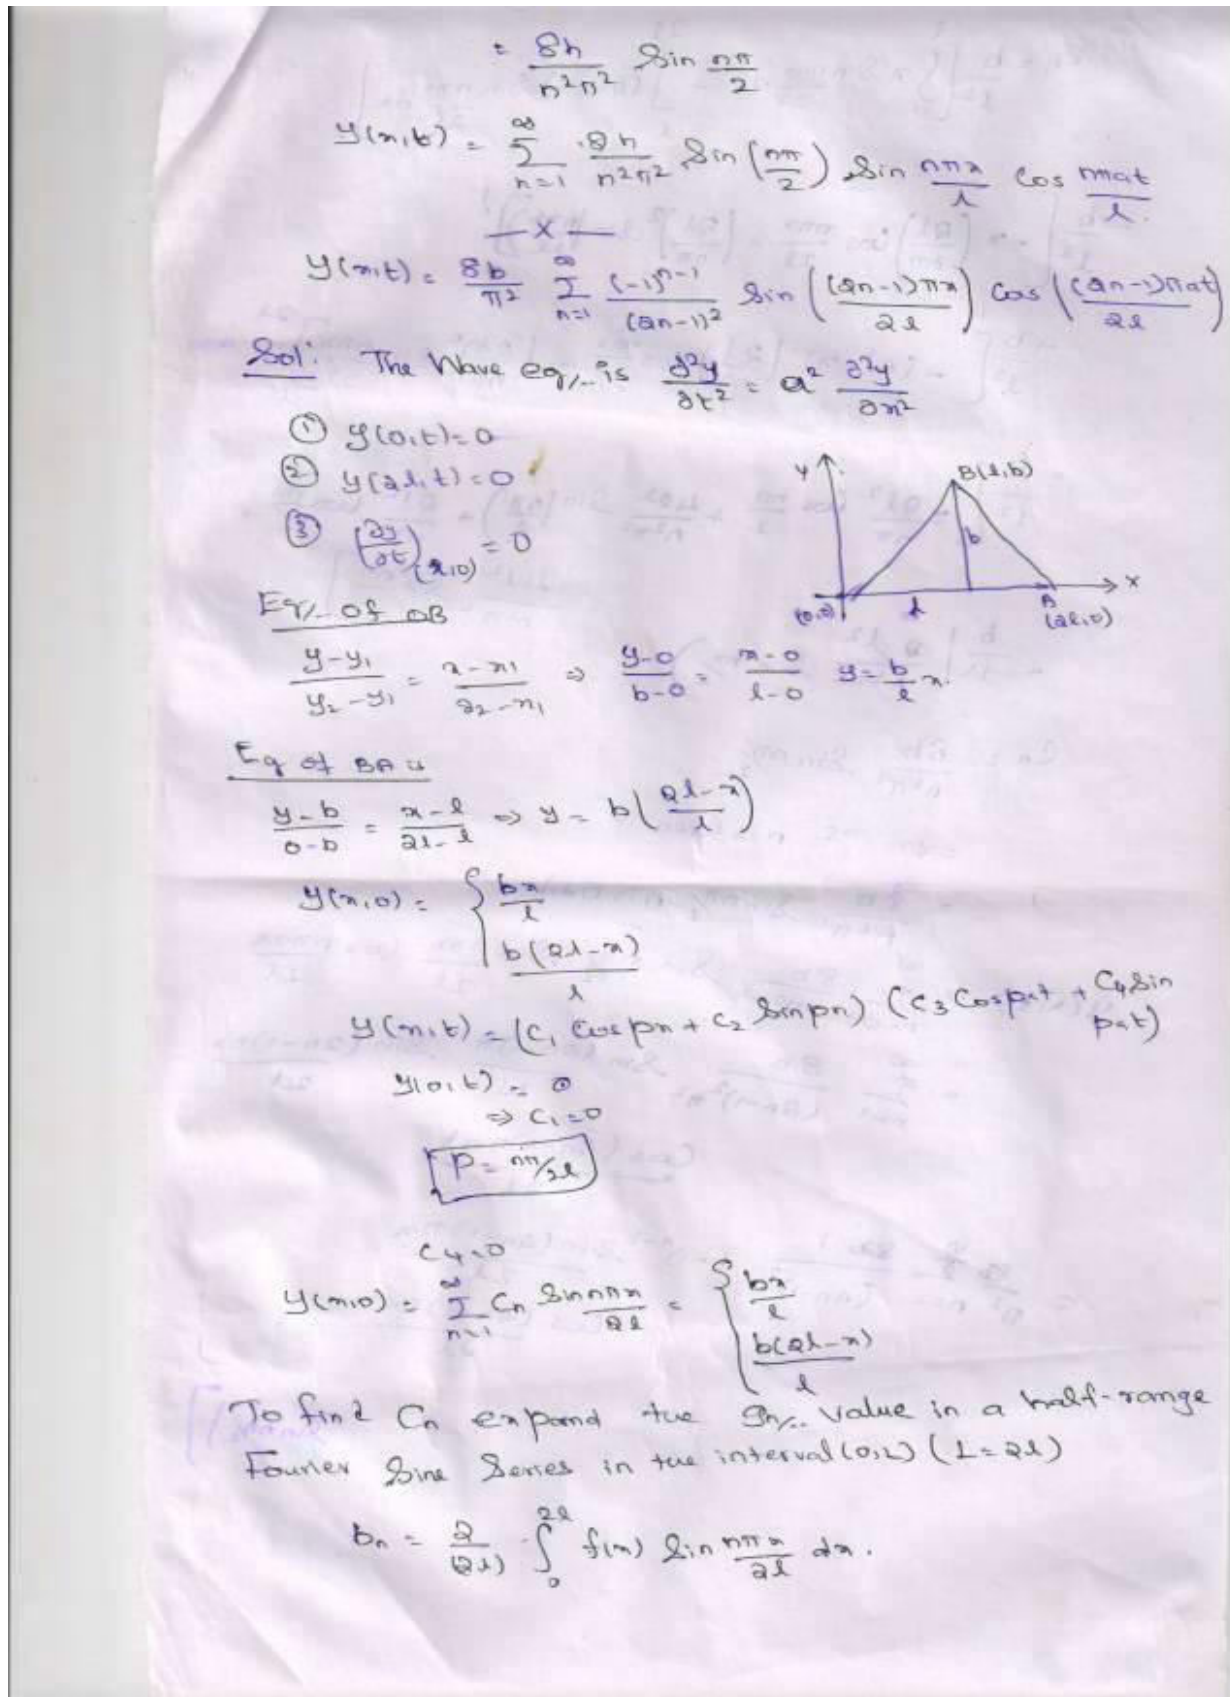 = 8h/n²π² Sin nπ/2
y(x,t) = ∞Σn=1 8h/n²π² Sin(nπ/2) Sin nπx/l Cos nπat/l.
—x—
y(x,t) = 8b/π² ∞Σn=1 (-1)ⁿ⁻¹/(2n-1)² Sin((2n-1)πx/2l) Cos((2n-1)πat/2l)
Sol: The Wave eq/.. is ∂²y/∂t² = a² ∂²y/∂x²
① y(0,t)=0
② y(2l,t)=0
③ (∂y/∂t)(x,0) = 0
Y
B(l,b)
b
X
(0,0)
l
A
(2l,0)
Eq/.. of OB
y-y₁/y₂-y₁ = x-x₁/x₂-x₁ ⇒ y-0/b-0 = x-0/l-0 y = b/l x.
Eq of BA is
y-b/0-b = x-l/2l-l ⇒ y = b(2l-x/l)
y(x,0) = { bx/l
b(2l-x)/l
y(x,t) = (C₁ Cos px + C₂ Sin px) (C₃ Cos pat + C₄ Sin pat)
y(0,t) = 0
⇒ C₁=0
P = nπ/2l
C₄=0
y(x,0) = ∞Σn=1 Cn Sin nπx/2l = { bx/l
b(2l-x)/l
To find Cn expand the value in a half-range
Fourier Sine Series in the interval (0,L) (L=2l)
bn = 2/(2l) ∫₀²ˡ f(x) Sin nπx/2l dx.